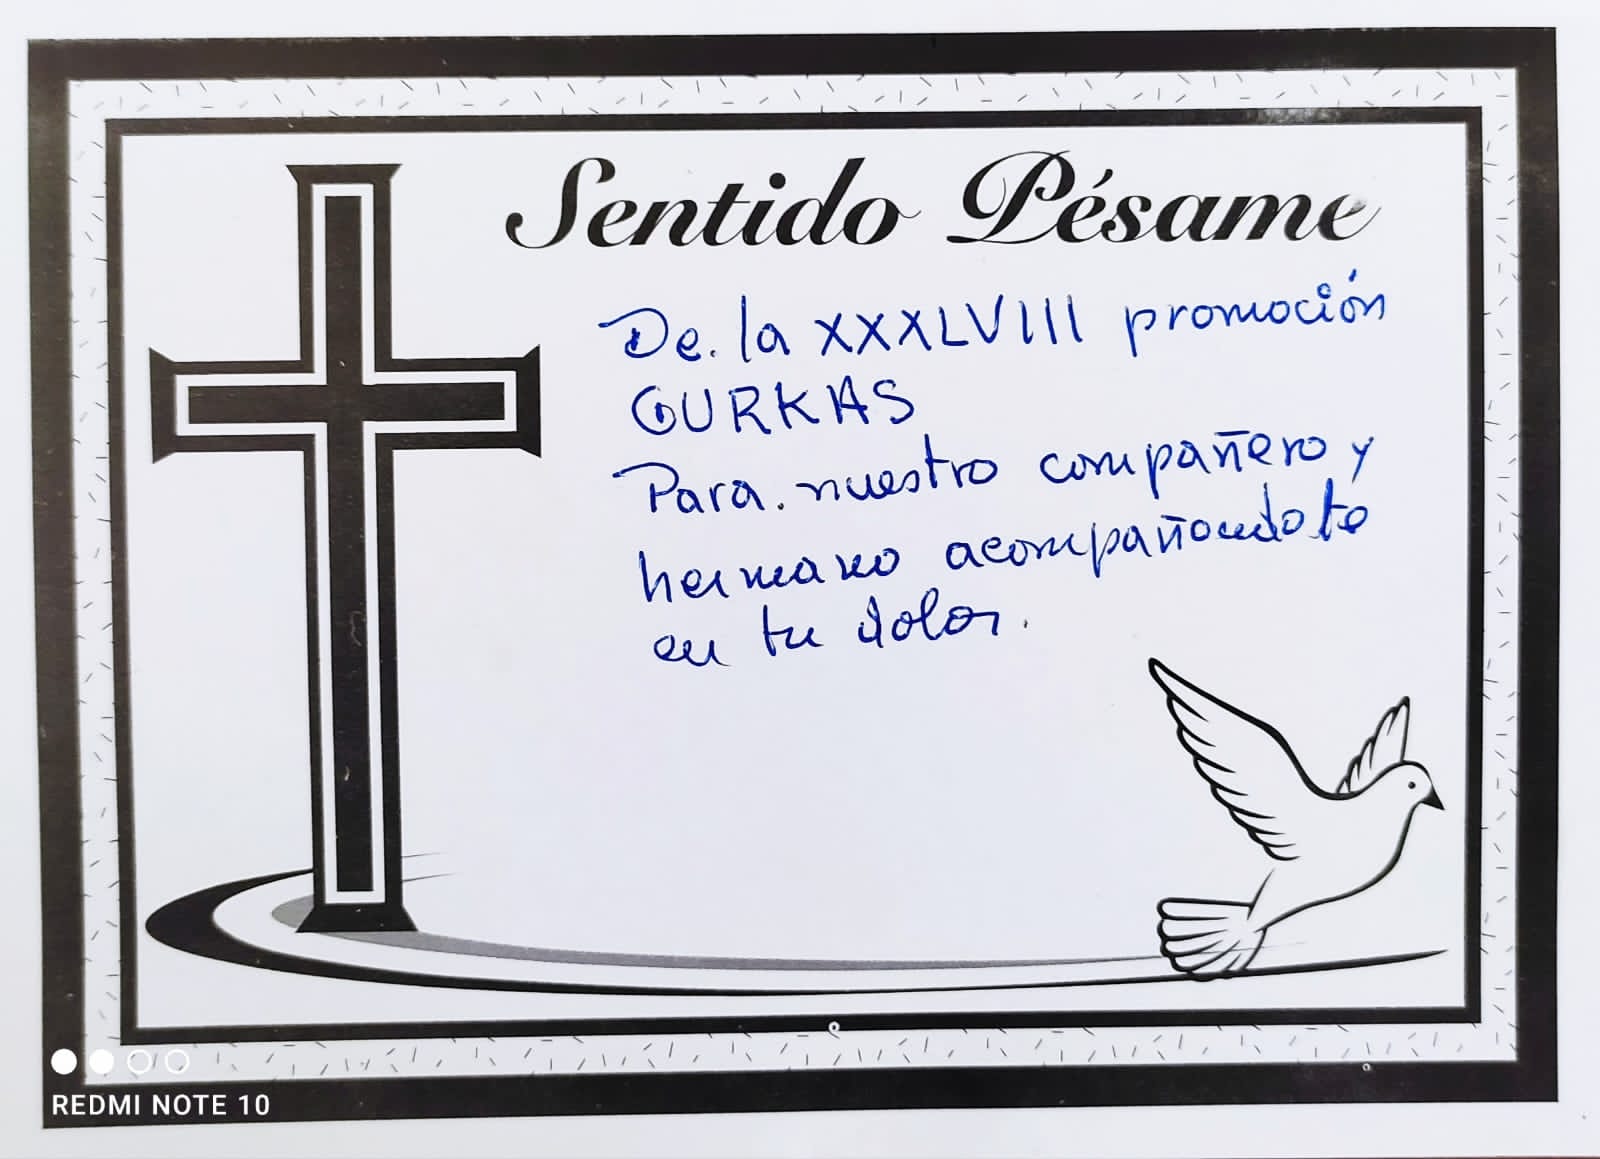 Sentido Pésame
De. la XXXLVIII promoción
GURKAS
Para. nuestro compañero y
hermano acompañandote
en tu dolor.
REDMI NOTE 10